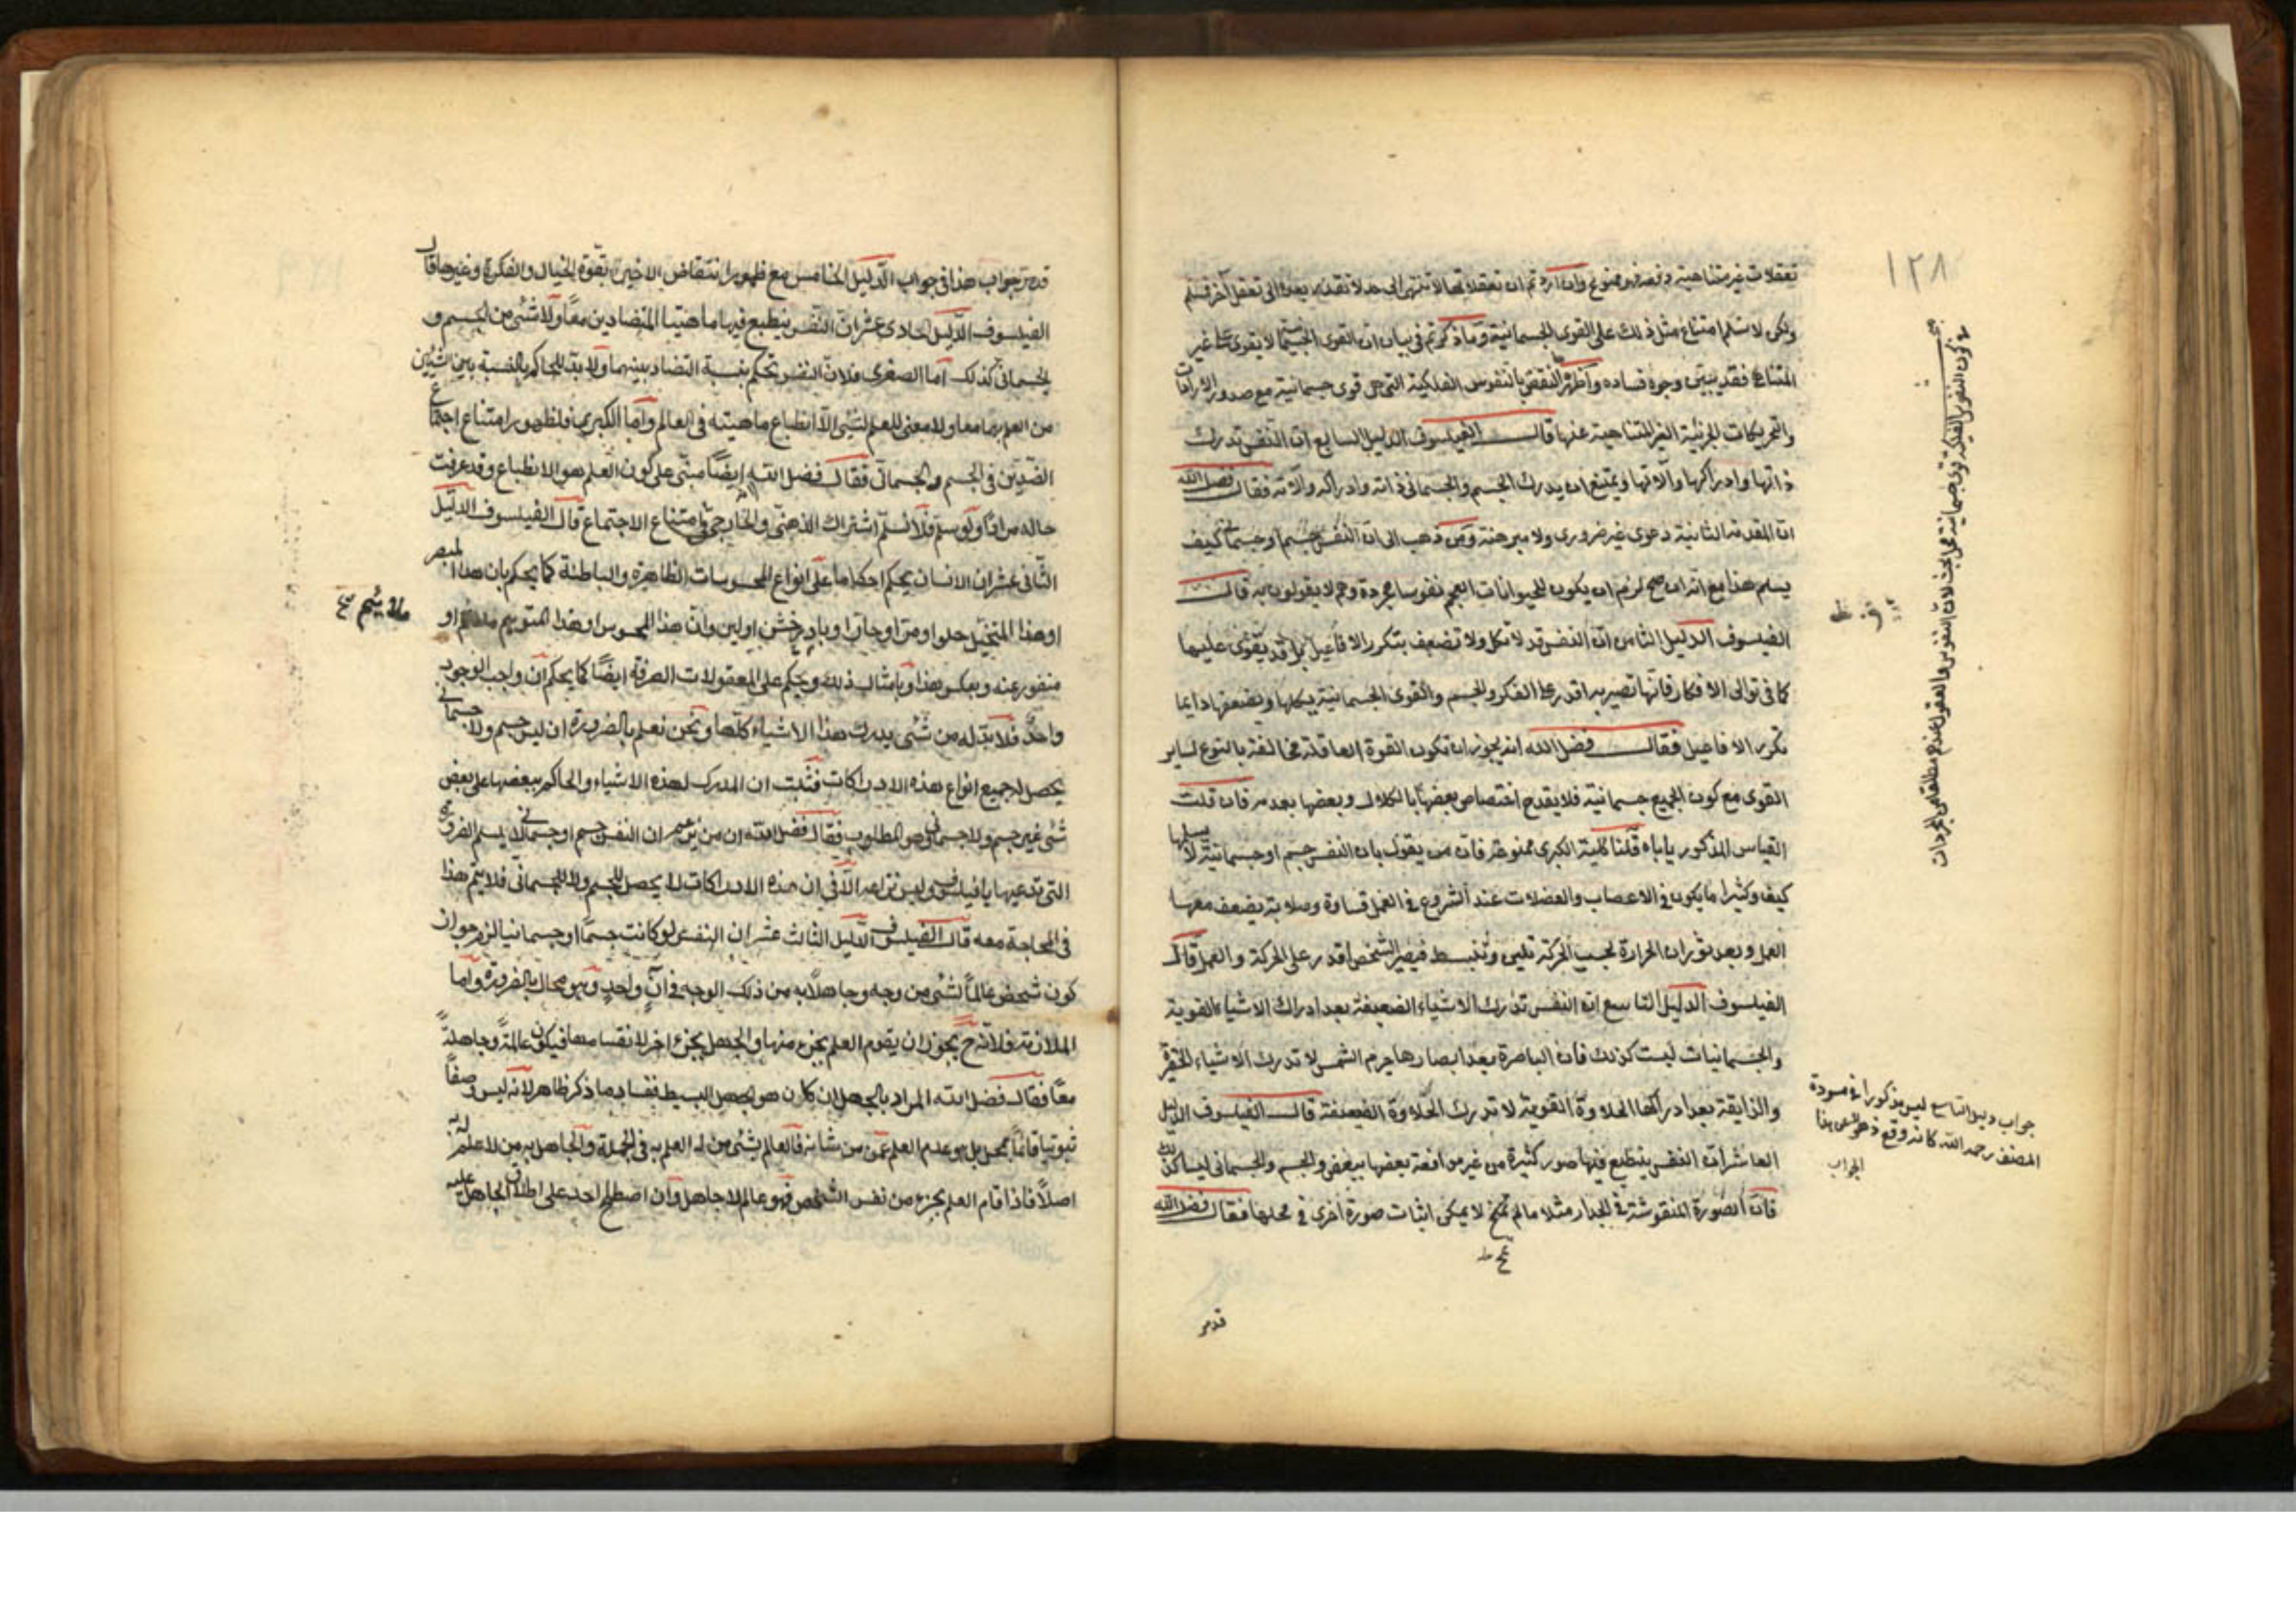 ١٢٨
تعقلات غير متناهية دفعة فهو ممنوع وان اردتم ان تعقلاتها لا تنتهى الى حد لا تقدر بعده الى تعقل آخر فمسلم
ولكن لا نسلم امتناع مثل ذلك على القوى الجسمانية وما ذكرتم فى بيان ان القوى الجسمانية لا يقوى على غير
المتناهى فقد تبين وجوه فساده واظهرها النقض بالنفوس الفلكية التى هى قوى جسمانية مع صدور الارادات
والتحريكات الجزئية الغير المتناهية عنها قال الفيلسوف الدليل السابع ان النفس تدرك
ذاتها وادراكها وآلاتها ويمتنع ان يدرك الجسم والجسمانى ذاته وادراكه وآلاته فقال فضل الله
ان المقدمة الثانية دعوى غير ضرورى ولا مبرهنة ومن ذهب الى ان النفس جسم او جسمانى كيف
يسلم هذا مع انه ان صح لزم ان يكون للحيوانات العجم نفوسا مجردة وهم لا يقولون به قال
الفيلسوف الدليل الثامن ان النفس قد لا تكل ولا تضعف بتكرر الافاعيل بل قد يقوى عليها
كما فى توالى الافكار فانها تصير به اقدر على الفكر والجسم والقوى الجسمانية يكلها ويضعفها دايما
تكرر الافاعيل فقال فضل الله انه يجوز ان تكون القوة العاقلة مخالفة بالنوع لساير
القوى مع كون الجميع جسمانية فلا يقدح اختصاص بعضها بالكلال وبعضها بعدمه فان قلت
القياس المذكور ياباه قلنا كلية الكبرى ممنوعة فان من يقول بان النفس جسم او جسمانية لا يسلمها
كيف وكثيرا ما يكون فى الاعصاب والعضلات عند الشروع فى العمل قساوة وصلابة يضعف معها
العمل وبعد ثوران الحرارة بحسب الحركة تلين وتنبسط فيصير الشخص اقدر على الحركة والعمل قال
الفيلسوف الدليل التاسع ان النفس تدرك الاشياء الضعيفة بعد ادراك الاشياء القوية
والجسمانيات ليست كذلك فان الباصرة بعد ابصارها جرم الشمس لا تدرك الاشياء الحقيرة
والذايقة بعد ادراكها الحلاوة القوية لا تدرك الحلاوة الضعيفة قال الفيلسوف الدليل
العاشر ان النفس ينطبع فيها صور كثيرة من غير مدافعة بعضها ببعض والجسم والجسمانى ليسا كذلك
فان الصورة المنقوشة فى الجدار مثلا ما لم تمح لا يمكن اثبات صورة اخرى فى محلها فقال فضل الله
قد مر
كون النفوس الفلكية قوى جسمانية محل بحث لان النفوس والعقول عندهم مطلقا من المجردات
جواب دليل التاسع ليس مذكورا فى مسودة
المصنف رحمه الله كانه وقع ذهول عن هذا
الجواب
قد مر جواب هذا فى جواب الدليل الخامس مع ظهور انتقاض الاخيرين بقوة الخيال والفكرة وغيرها قال
الفيلسوف الدليل الحادى عشر ان النفس ينطبع فيها ماهيتا المتضادين معا ولا شئ من الجسم و
الجسمانى كذلك اما الصغرى فلان النفس تحكم بنسبة التضاد بينهما ولا بد للحاكم بالنسبة بين الشيئين
من العلم بهما معا ولا معنى للعلم لشئ الا انطباع ماهيته فى العالم واما الكبرى فلظهور امتناع اجتماع
الضدين فى الجسم والجسمانى فقال فضل الله ايضا مبنى على كون العلم هو الانطباع وقد عرفت
حاله مرارا ولو سلم فلا نسلم اشتراك الذهنى والخارجى فى امتناع الاجتماع قال الفيلسوف الدليل
الثانى عشر ان الانسان يحكم احكاما على انواع المحسوسات الظاهرة والباطنة كما يحكم بان هذا المبصر
او هذا المتخيل حلو او مر او حار او بارد او خشن او لين وان هذا المحسوس او هذا المتوهم ملائم او
منفور عنه وبعكس هذا وبامثال ذلك ويحكم على المعقولات الصرفة ايضا كما يحكم ان واجب الوجود
واحد فلا بد له من شئ يدرك هذا الاشياء كلها ونحن نعلم بالضرورة ان ليس جسم ولا جسمانى
يحصل له جميع انواع هذه الادراكات فثبت ان المدرك لهذه الاشياء والحاكم ببعضها على بعض
شئ غير جسم ولا جسمانى وهو المطلوب فقال فضل الله ان من يزعم ان النفس جسم او جسمانى لا يسلم الضرورة
التى تدعيها يا فيلسوف وليس نزاعه الا فى ان هذه الادراكات لا يحصل للجسم ولا للجسمانى فلا يتم هذا
فى المحاجة معه قال الفيلسوف الدليل الثالث عشر ان النفس لو كانت جسما او جسمانيا لزم جواز
كون شخص عالما لشئ من وجه وجاهلا به من ذلك الوجه فى آن واحد وهو محال بالضرورة واما
الملازمة فلانه ح يجوز ان يقوم العلم بجزء منها والجهل بجزء اخر لانقسامها فيكون عالمة وجاهلة
معا فقال فضل الله المراد بالجهل ان كان هو الجهل البسيط ففساد ما ذكر ظاهر لانه ليس وصفا
ثبوتيا قائما بمحل بل هو عدم العلم عمن من شانه فالعالم بشئ من له العلم به فى الجملة والجاهل به من لا علم له به
اصلا فاذا قام العلم بجزء من نفس الشخص فهو عالم لا جاهل وان اصطلح احد على اطلاق الجاهل عليه
ملايم